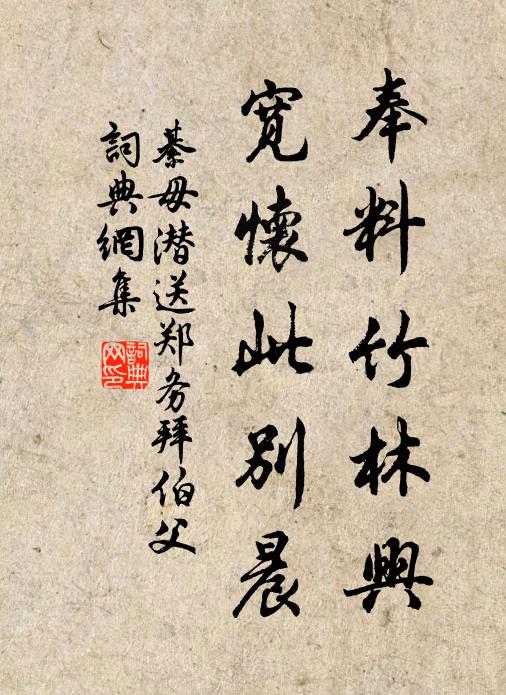 奉料竹林興
寬懷此別晨
綦毋潜送郑务拜伯父
詞典網集
詞典网印